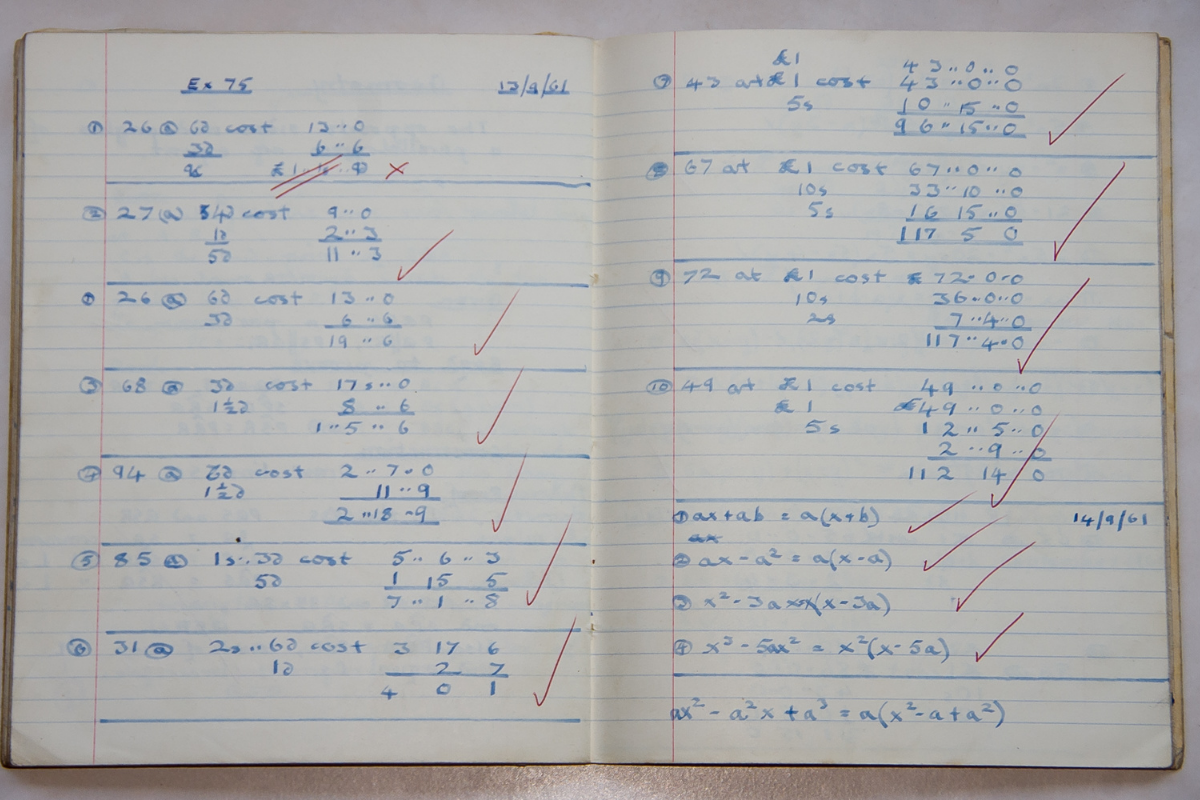 Ex 75 13/9/61
① 26 @ 6d cost 13 .. 0
3d 6 .. 6
9d
② 27 @ 4d cost 9 .. 0
1d 2 .. 3
5d 11 .. 3
① 26 @ 6d cost 13 .. 0
3d 6 .. 6
19 .. 6
③ 68 @ 3d cost 17s .. 0
1½d 8 .. 6
1 .. 5 .. 6
④ 94 @ 6d cost 2 .. 7 .. 0
1½d 11 .. 9
2 .. 18 .. 9
⑤ 85 @ 1s .. 3d cost 5 .. 6 .. 3
5d 1 15 5
7 .. 1 .. 8
⑥ 31 @ 2s .. 6d cost 3 17 6
1d 2 7
4 0 1
£1 43 .. 0 .. 0
⑦ 43 at £1 cost 43 .. 0 .. 0
5s 10 .. 15 .. 0
96 .. 15 .. 0
⑧ 67 at £1 cost 67 .. 0 .. 0
10s 33 .. 10 .. 0
5s 16 15 .. 0
117 5 0
⑨ 72 at £1 cost 72 . 0 . 0
10s 36 . 0 . 0
2s 7 .. 4 .. 0
117 .. 4 . 0
⑩ 49 at £1 cost 49 .. 0 .. 0
£1 49 .. 0 .. 0
5s 12 .. 5 .. 0
2 .. 9 .. 0
112 14 0
① ax + ab = a(x + b) 14/9/61
ax
② ax - a² = a(x - a)
③ x² - 3ax x(x - 3a)
④ x³ - 5ax² = x²(x - 5a)
ax² - a²x + a³ = a(x² - a + a²)